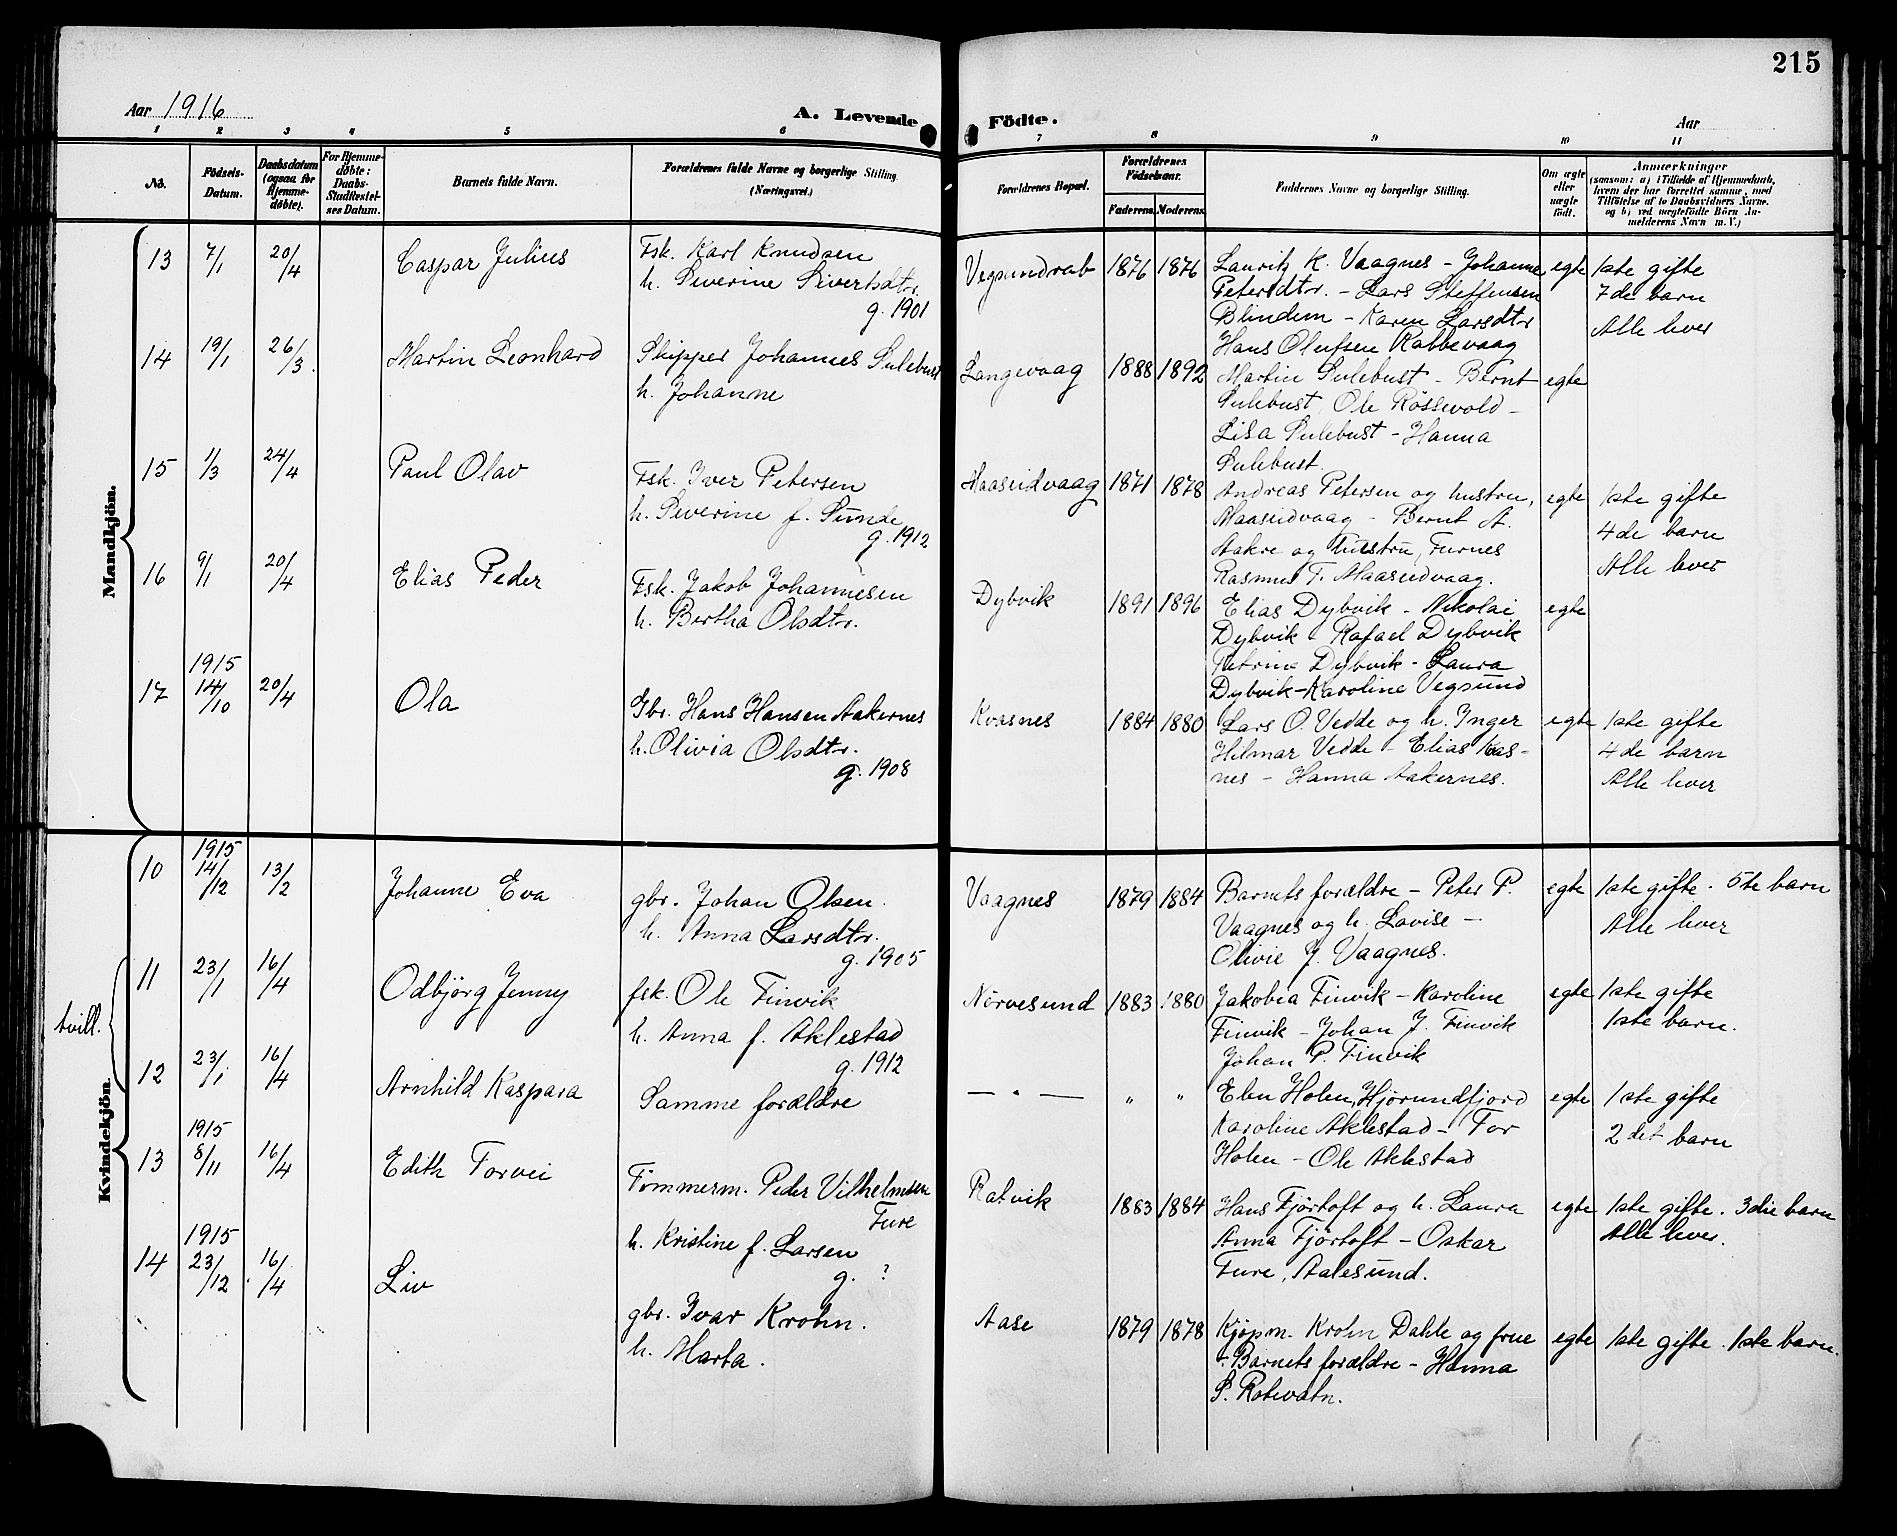 215
Aar 1916
A. Levende
Födte.
Aar
1 2 3 4 5 6 7 8 9 10 11
No.
Födsels-
Datum.
Daabsdatum
(ogsaa for
Hjemme-
döbte).
For Hjemme-
döbte:
Daabs-
Stadfæstel-
ses Datum.
Barnets fulde Navn.
Forældrenes fulde Navne og borgerlige Stilling
(Næringsvei.)
Forældrenes Bopæl.
Forældrenes
Födselsaar.
Faderens Moderens
Faddernes Navne og borgerlige Stilling.
Om ægte
eller
uægte
födt.
Anmærkninger
(saasom: a) i Tilfælde af Hjemmedaab,
hvem der har forrettet samme, med
Tilföielse af to Daabsvidners Navne,
og b) ved uægtefödte Börn An-
melderens Navn m. V.)
Mandkjön.
13 7/1 20/4 Caspar Julius
Fsk. Karl Knudsen
h. Severine Sivertsdtr.
g. 1901
Vegsundrab 1876 1876
Lauritz K. Vaagnes - Johanne
Petersdtr. - Lars Steffensen
Blindem - Karen Larsdtr
Hans Olufsen Rabbevaag
egte
1ste gifte
7de barn
Alle lever
14 19/1 26/3. Martin Leonhard
Skipper Johannes Sulebust
h. Johanne
Langevaag 1888 1892
Martin Sulebust - Bernt
Sulebust, Ole Røssevold -
Lisa Sulebust - Hanna
Sulebust.
egte
15 1/3 24/4 Paul Olav
Fsk. Iver Petersen
h. Severine f. Sunde
g. 1912
Maaseidvaag 1871 1878
Andreas Petersen og hustru,
Maaseidvaag - Bernt A.
Aakre og hustru, Furnes
Rasmus T. Maaseidvaag.
egte
1ste gifte
4de barn
Alle lever
16 9/1 20/4 Elias Peder
Fsk. Jakob Johannesen
h. Bertha Olsdtr.
Dybvik 1891 1896
Elias Dybvik - Nikolai
Dybvik - Rafael Dybvik
Petrine Dybvik - Laura
Dybvik - Karoline Vegsund
egte
17 1915 14/10 20/4 Ola
Gbr. Hans Hansen Aakernes
h. Olivia Olsdtr.
g. 1908
Kvasnes 1884 1880
Lars O. Vedde og h. Inger
Hilmar Vedde - Elias Kvas-
nes - Hanna Aakernes.
egte
1ste gifte
4de barn
Alle lever
Kvindekjön.
10 1915 14/12 13/2 Johanne Eva
gbr. Johan Olsen.
h. Anna Larsdtr.
g. 1905
Vaagnes 1879 1884
Barnets forældre - Peter P.
Vaagnes og h. Lovise -
Olivie J. Vaagnes.
egte
1ste gifte. 5te barn
Alle lever
tvill.
11 23/1 16/4 Odbjørg Jenny
fsk. Ole Finvik
h. Anna f. Aklestad
g. 1912
Nørvesund 1883 1880
Jakobea Finvik - Karoline
Finvik - Johan J. Finvik
Johan P. Finvik
egte
1ste gifte
1ste barn.
12 23/1 16/4 Arnhild Kaspara
Samme forældre
— " — " "
Elen Holen, Hjørundfjord
Karoline Aklestad - Tor
Holen - Ole Aklestad
egte
1ste gifte
2det barn
13 1915 8/11 16/4 Edith Torvei
Tømmerm. Peder Vilhelmsen
Ture
h. Kristine f. Larsen
g. ?
Ratvik 1883 1884
Hans Fjørtoft og h. Laura
Anna Fjørtoft - Oskar
Ture, Aalesund.
egte
1ste gifte. 3die barn
Alle lever.
14 1915 23/12. 16/4 Liv
gbr. Ivar Krohn.
h. Marta.
Aase 1879 1878
Kjøpm. Krohn Dahle og frue
- Barnets forældre - Hanna
S. Rotevatn.
egte
1ste gifte. 1ste barn.